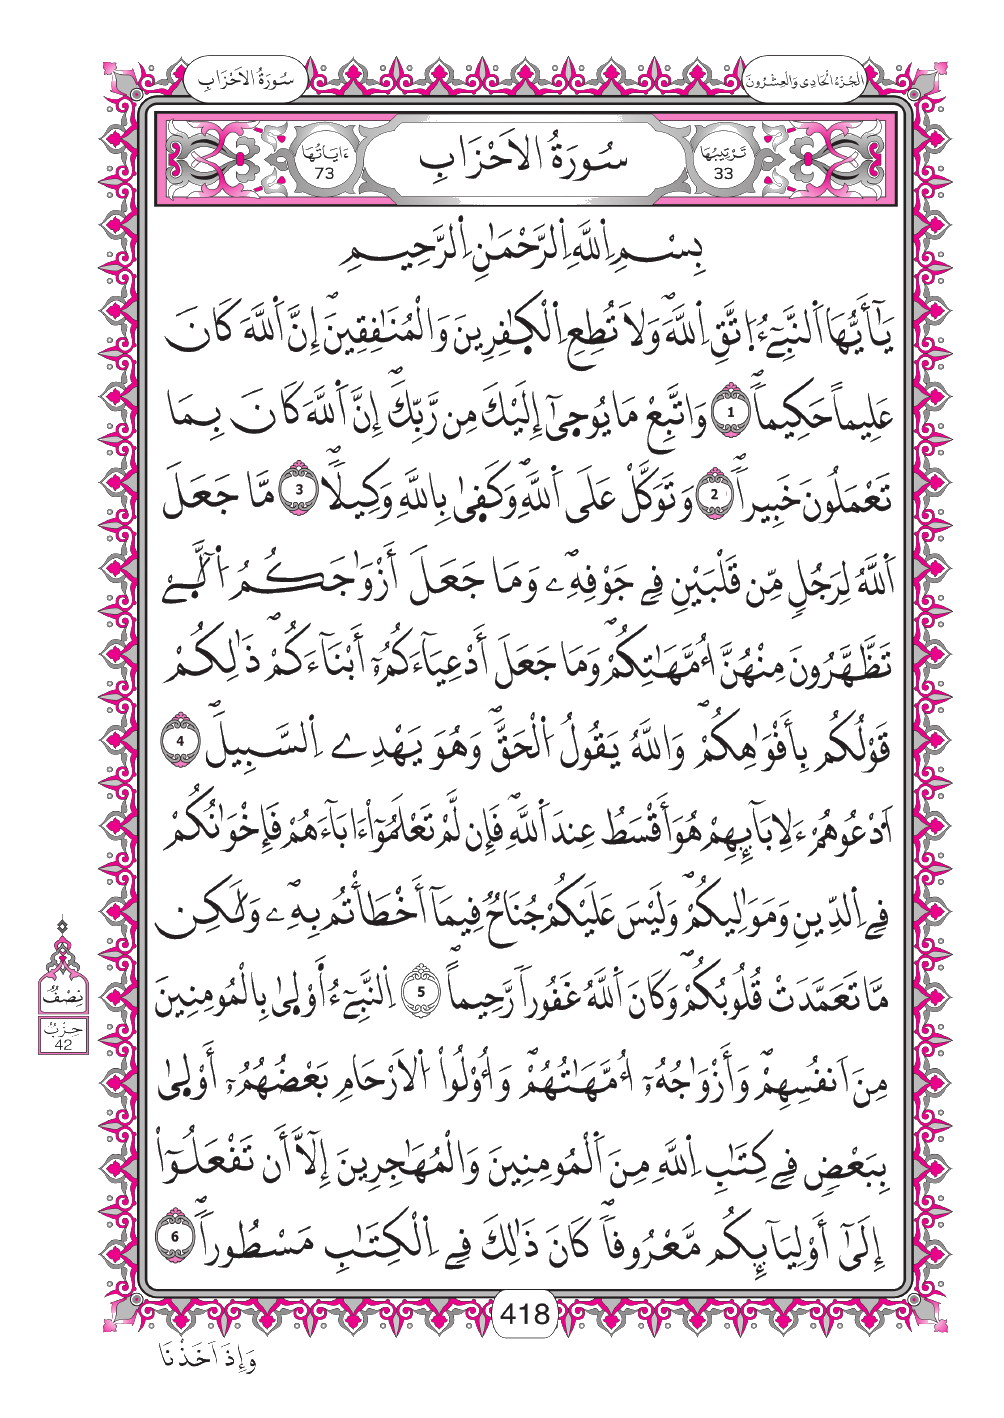 الجُزْءُ الْحَادِي وَالْعِشْرُونَ
سُورَةُ الْأَحْزَابِ
تَرْتِيبُهَا 33
سُورَةُ الْأَحْزَابِ
ءَايَاتُهَا 73
بِسْمِ اِللَّهِ اِلرَّحْمَٰنِ اِلرَّحِيمِ
يَٰٓأَيُّهَا اَلنَّبِےٓءُ اِ۪تَّقِ اِللَّهَۖ وَلَا تُطِعِ اِلْكٰ۪فِرِينَ وَالْمُنَٰفِقِينَۖ إِنَّ اَللَّهَ كَانَ
عَلِيماً حَكِيماٗۖ 1 وَاتَّبِعْ مَا يُوح۪يٰٓ إِلَيْكَ مِن رَّبِّكَۖ إِنَّ اَللَّهَ كَانَ بِمَا
تَعْمَلُونَ خَبِيراٗۖ 2 وَتَوَكَّلْ عَلَى اَللَّهِۖ وَكَف۪يٰ بِاللَّهِ وَكِيلاٗۖ 3 مَّا جَعَلَ
اَللَّهُ لِرَجُلٖ مِّن قَلْبَيْنِ فِے جَوْفِهِۦۖ وَمَا جَعَلَ أَزْوَٰجَكُمُ اُلَّٰٓـِٔے
تَظَّهَّرُونَ مِنْهُنَّ أُمَّهَٰتِكُمْۖ وَمَا جَعَلَ أَدْعِيَآءَكُمُۥٓ أَبْنَآءَكُمْۖ ذَٰلِكُمْ
قَوْلُكُم بِأَفْوَٰهِكُمْۖ وَاللَّهُ يَقُولُ اُلْحَقَّۖ وَهُوَ يَهْدِے اِلسَّبِيلَۖ 4
اَ۟دْعُوهُمْ ءَلِابَآئِهِمْ هُوَ أَقْسَطُ عِندَ اَللَّهِۖ فَإِن لَّمْ تَعْلَمُوٓاْ ءَابَآءَهُمْ فَإِخْوَٰنُكُمْ
فِے اِلدِّينِ وَمَوَٰلِيكُمْۖ وَلَيْسَ عَلَيْكُمْ جُنَاحٞ فِيمَآ أَخْطَأْتُم بِهِۦۖ وَلَٰكِن
مَّا تَعَمَّدَتْ قُلُوبُكُمْۖ وَكَانَ اَللَّهُ غَفُوراٗ رَّحِيماٗۖ 5 اِلنَّبِےٓءُ أَوْل۪يٰ بِالْمُومِنِينَ
مِنَ اَنفُسِهِمْۖ وَأَزْوَٰجُهُۥٓ أُمَّهَٰتُهُمْۖ وَأُوْلُواْ اُلَارْحَامِ بَعْضُهُمُۥٓ أَوْل۪يٰ
بِبَعْضٖ فِے كِتَٰبِ اِللَّهِ مِنَ اَلْمُومِنِينَ وَالْمُهَٰجِرِينَ إِلَّآ أَن تَفْعَلُوٓاْ
إِلَىٰٓ أَوْلِيَآئِكُم مَّعْرُوفاٗۖ كَانَ ذَٰلِكَ فِے اِلْكِتَٰبِ مَسْطُوراٗۖ 6
نِصْفُ
حِزْبُ
42
418
وَإِذَ اَخَذْنَا